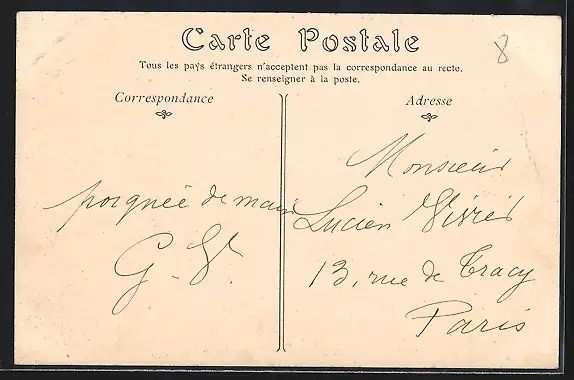 Carte Postale
8
Tous les pays étrangers n'acceptent pas la correspondance au recto.
Se renseigner à la poste.
Correspondance
Adresse
poignée de main
G. V.
Monsieur
Lucien
13, rue de Tracy
Paris